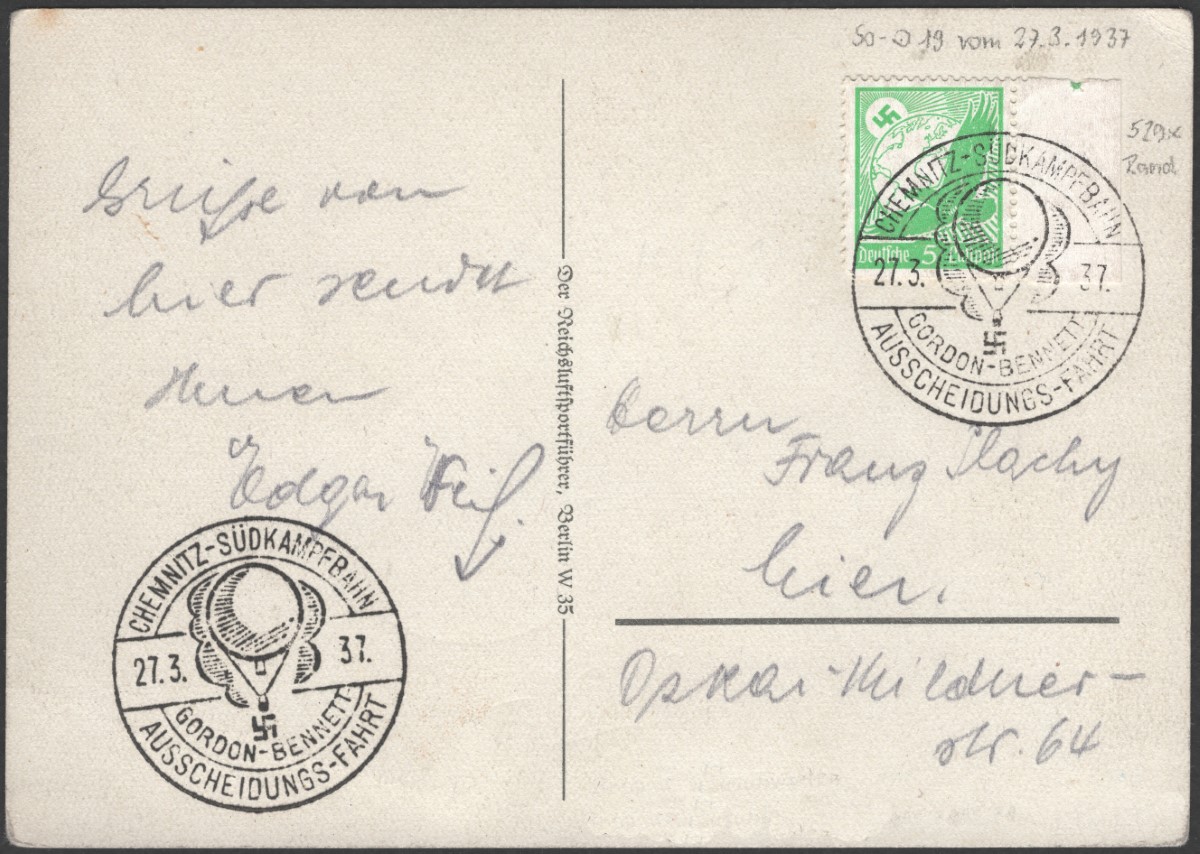 So-O 19 vom 27.3.1937
529x
Rand
Deutsche 5 Luftpost
CHEMNITZ-SÜDKAMPFBAHN
27.3. 37.
GORDON-BENNETT-
AUSSCHEIDUNGS-FAHRT
Grüße von
hier sendet
Ihnen
Edgar
Der Reichsluftsportführer, Berlin W 35
Herrn
Franz
hier.
Oskar-Mildner-
str. 64
CHEMNITZ-SÜDKAMPFBAHN
27.3. 37.
GORDON-BENNETT-
AUSSCHEIDUNGS-FAHRT